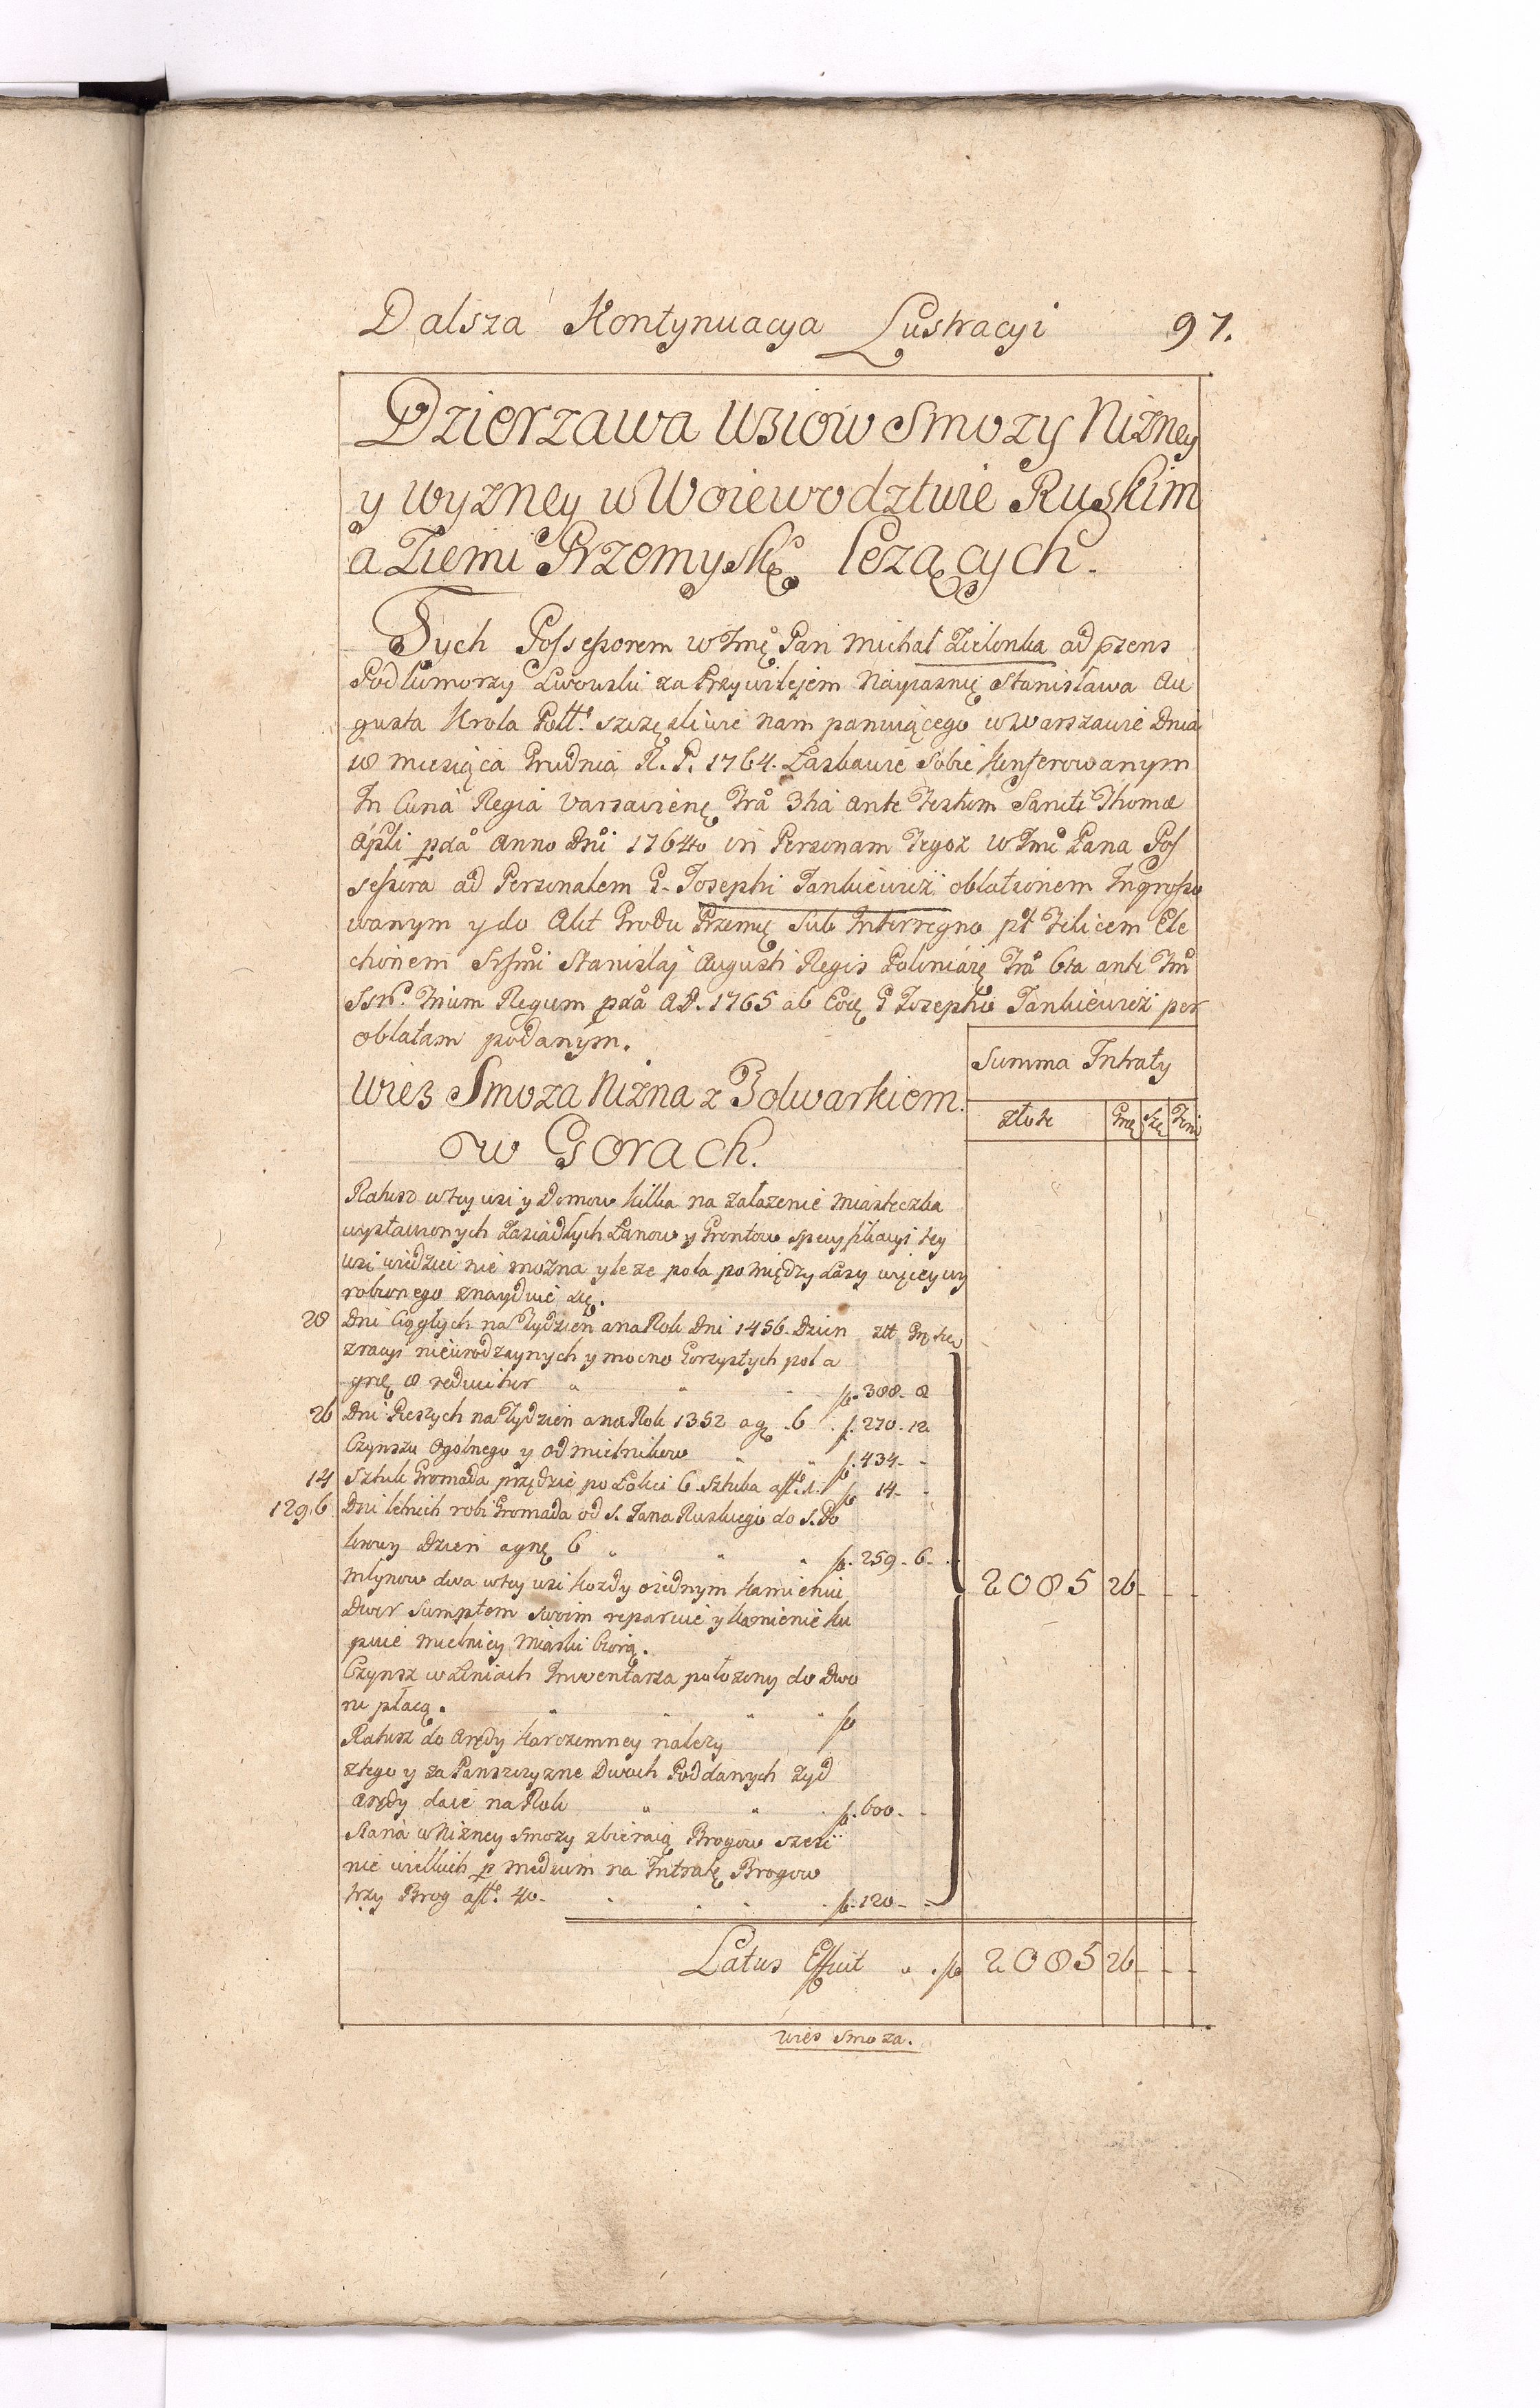 Dalsza Kontynuacya Lustracyi 97.
Dzierzawa Wsiow Smozy Nizney
y Wyzney w Woiewodztwie Ruskim
a Ziemi Przemyskę lezących.
Tych Possessorem W Jmę Pan Michał Zielonka ad prens
Podkomorzy Lwowski za Przywilejem Nayiasnię Stanisława Au
gusta Krola Polł. szczęsliwie nam panuiącego w Warszawie Dnia
18 Miesiąca Grudnia R. P. 1764. Łaskawie Sobie Konferowanym
In Curia Regia Varsavienę Fra 3tia ante Festum Sancti Thomæ
Apli pda Anno Dni 1764to in Personam Tegoz W Jmę Pana Pos
sessora ad Personalem G. Josephi Jankiewicz oblationem Ingrosso
wanym y do Akt Grodu Przemę Sub Interregno pt Felicem Ele
ctionem Srsmi Stanislaj Augusti Regis Poloniarę Fra 6ta ante Fm
SSrũ. Trium Regum pda AD. 1765 ab Eodę G Josepho Jankiewicz per
oblatam podanym.
Summa Intraty
Wies Smoza Nizna z Folwarkiem
złote Grę Szę
w Gorach.
Ratusz w tey wsi y Domow kilka na załozenie Miasteczka
wystawionych Zasiadłych Łanow y Grontow specyfikacyi tey
wsi wiedziec nie mozna yle ze pola pomiędzy Lasy więcey wy
robionego znayduie się.
28 Dni Ciągłych na Tydzien a na Rok Dni 1456. Dzien złt Grę szę
zracyi nieurodzaynych y mocno Gorzystych pol a
grę 8 reducitur " " f. 388. 8
26 Dni Pieszych na Tydzien a na Rok 1352 a gę. 6. f. 270. 12
Czynszu Ogolnego y od mielnikow " " f. 434. -
14 Sztuk Gromada przędzie po Łokci 6. Sztuka a fł. 1. f. 14. -
1296 Dni letnich robi Gromada od S. Jana Ruskiego do S. Po
krowy dzien a grę 6 " " " f. 259. 6.
Młynow dwa w tey wsi kozdy o iednym kamieniu
2085 26 - -
Dwor sumptem swoim reparuie y kamienie ku
puie Mielnicy Miarki biorą.
Czynsz w Liniach Inwentarza połozony do Dwo
ru płacą. " " " " f
Ratusz do arędy karczemney nalezy
z tego y za Panszczyzne Dwoch Poddanych Zyd
arędy daie na Rok " " f. 600. -
Siana w Nizney Smozy zbieraią Brogow szesc
nie wielkich p medium na Intratę Brogow
trzy Brog a fł. 40. f. 120. -
Latus Efficit " . f 2085 26 - -
Wies Smoza.